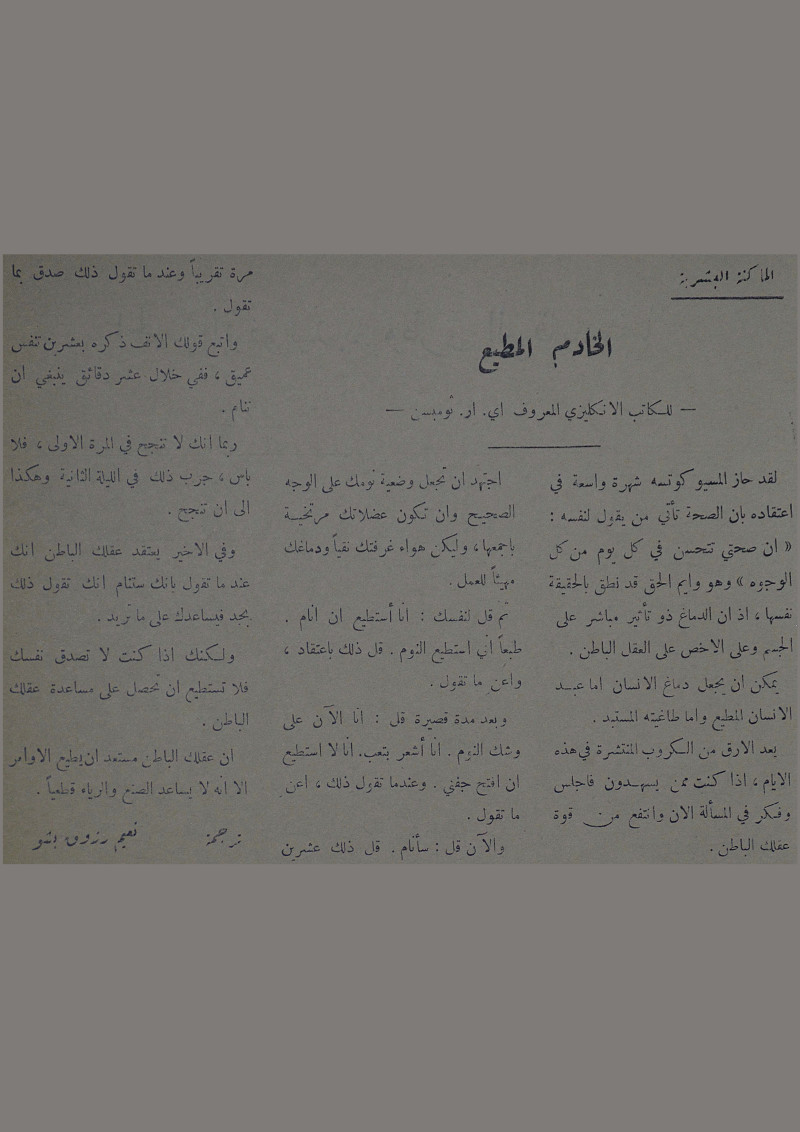 الماكنة البشرية
الخادم المطيع
— للكاتب الانكليزي المعروف اي. ار. تومبسن —
لقد حاز المسيو كوتسه شهرة واسعة في
اعتقاده بان الصحة تأتي من يقول لنفسه :
« ان صحتي تتحسن في كل يوم من كل
الوجوه » وهو وايم الحق قد نطق بالحقيقة
نفسها ، اذ ان الدماغ ذو تأثير مباشر على
الجسم وعلى الاخص على العقل الباطن .
يمكن ان يجعل دماغ الانسان اما عبد
الانسان المطيع واما طاغيته المستبد .
يعد الارق من الكروب المنتشرة في هذه
الايام ، اذا كنت ممن يسهدون فاجلس
وفكر في المسألة الان وانتفع من قوة
عقلك الباطن .
اجتهد ان تجعل وضعية نومك على الوجه
الصحيح وان تكون عضلاتك مرتخية
باجمعها ، وليكن هواء غرفتك نقياً ودماغك
مهيئاً للعمل .
ثم قل لنفسك : انا أستطيع ان انام .
طبعاً اني استطيع النوم . قل ذلك باعتقاد ،
واعن ما تقول .
وبعد مدة قصيرة قل : انا الآن على
وشك النوم . انا أشعر بتعب. انا لا استطيع
ان افتح جفني . وعندما تقول ذلك ، اعن
ما تقول .
والآن قل : سأنام . قل ذلك عشرين
مرة تقريباً وعند ما تقول ذلك صدق بما
تقول .
واتبع قولك الانف ذكره بعشرين تنفس
عميق ، ففي خلال عشر دقائق ينبغي ان
تنام .
ربما انك لا تنجح في المرة الاولى ، فلا
باس ، جرب ذلك في الليلة الثانية وهكذا
الى ان تنجح .
وفي الاخير يعتقد عقلك الباطن انك
عند ما تقول بانك ستنام انك تقول ذلك
بجد فيساعدك على ما تريد .
ولكنك اذا كنت لا تصدق نفسك
فلا تستطيع ان تحصل على مساعدة عقلك
الباطن .
ان عقلك الباطن مستعد ان يطيع الاوامر
الا انه لا يساعد الصنع والرياء قطعياً .
ترجمة نعيم رزوق بنو